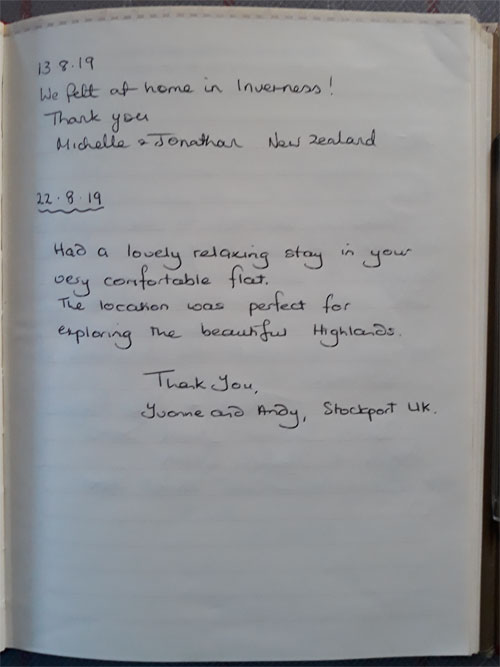 13 8.19
We felt at home in Inverness!
Thank you
Michelle & Jonathan New Zealand
22.8.19
Had a lovely relaxing stay in your
very comfortable flat.
The location was perfect for
exploring the beautiful Highlands.
Thank You,
Yvonne and Andy, Stockport UK.